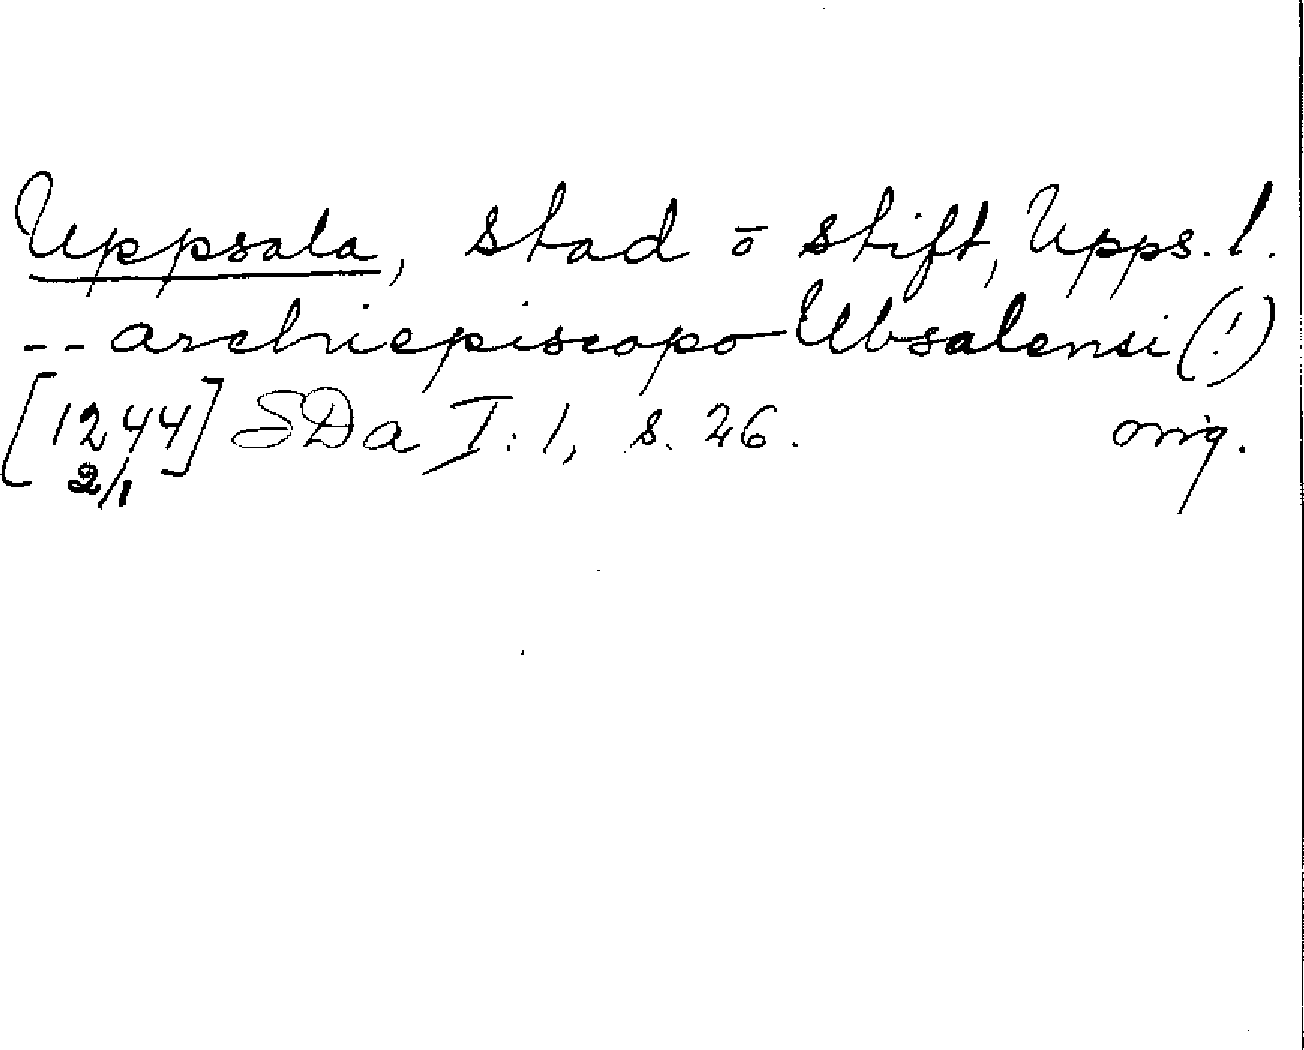 Uppsala, stad ō stift, Upps. l.
-- archiepiscopo Ubsalensi (!)
[1244] SDa I:1, s. 26. orig.
2/1